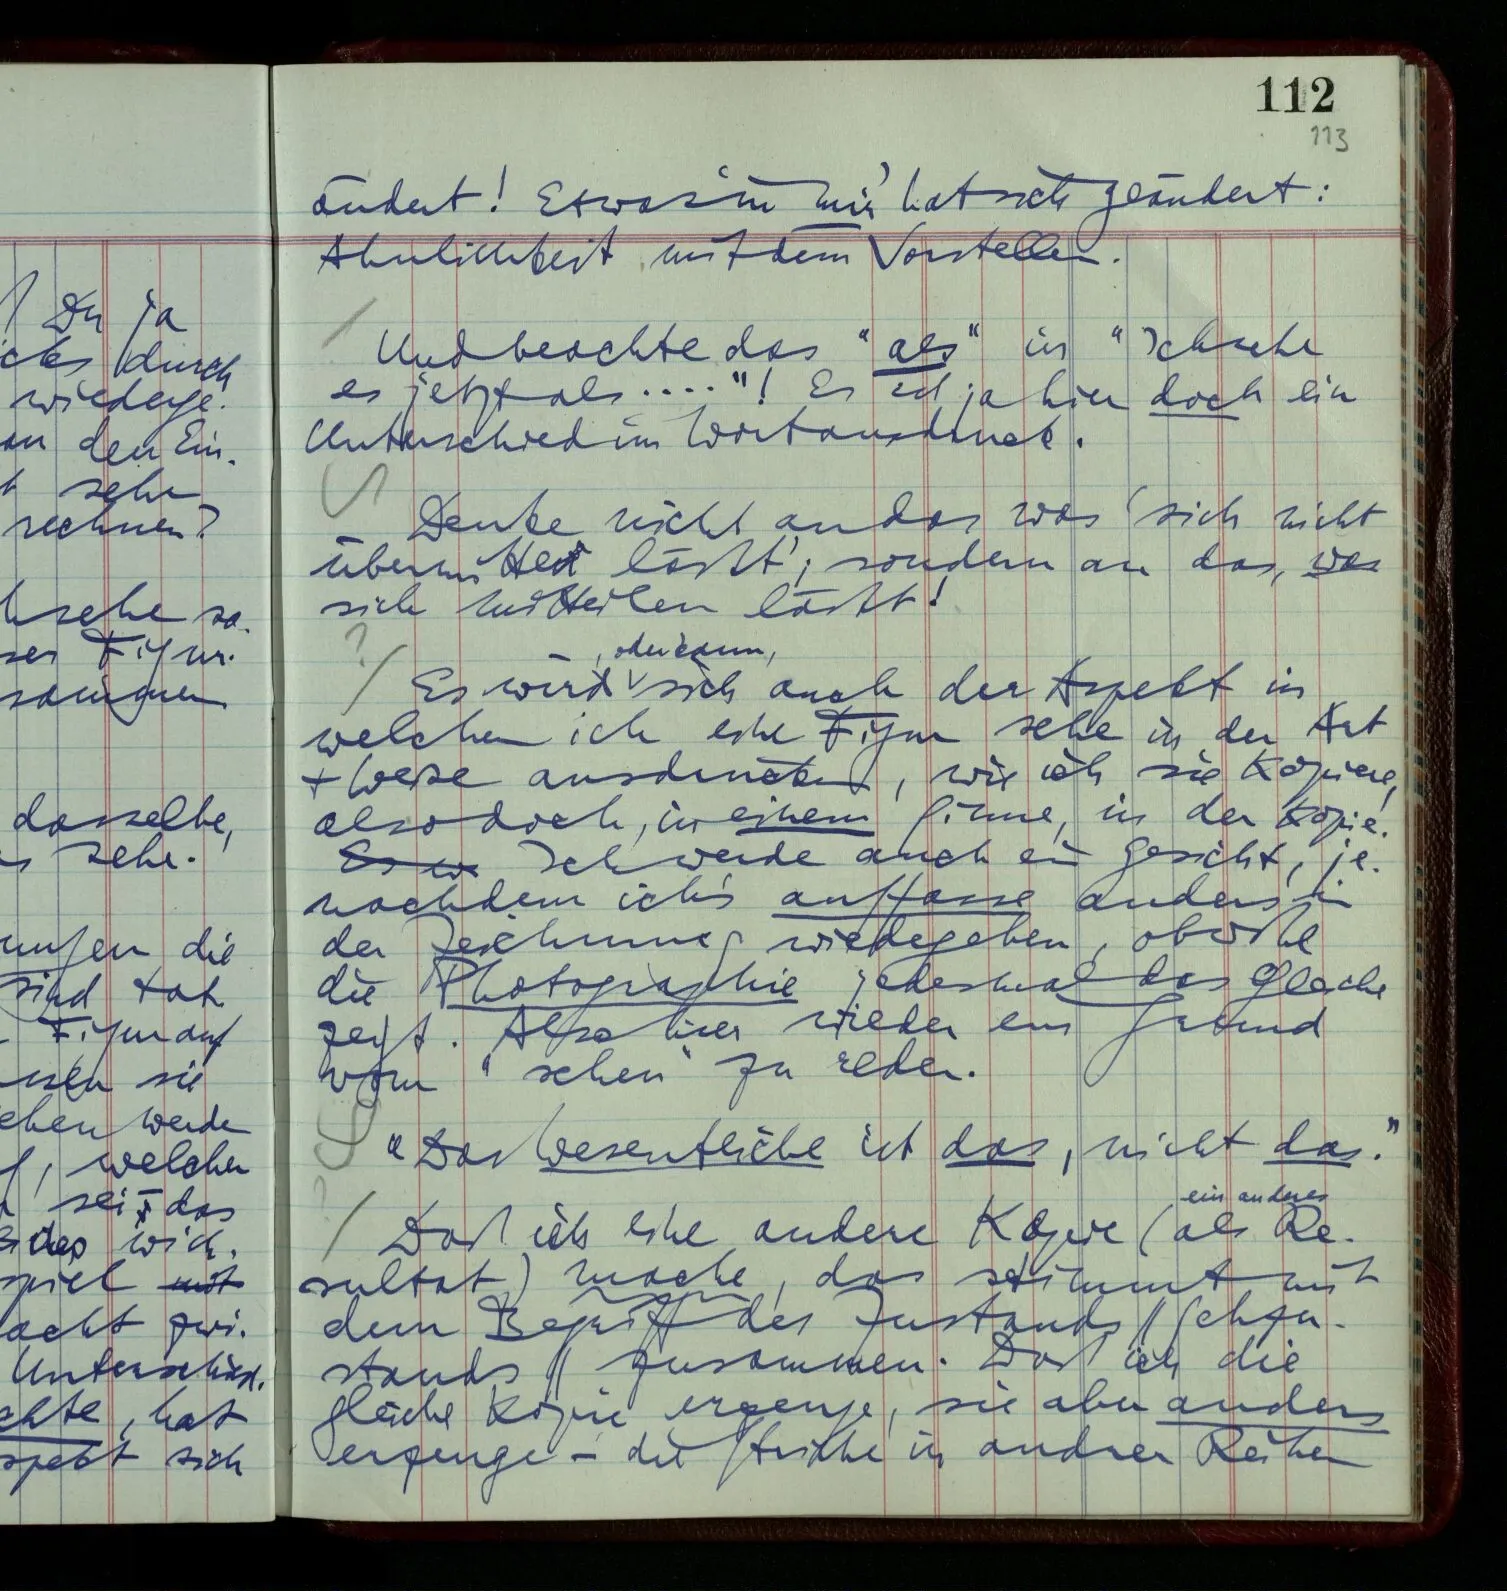 Du ja
durch
wiederge-
den Ein-
sehe
rechnen?
sehe so-
Figur.
dasselbe,
sehe.
die
sind
Figur auf
sie
werde
welcher
sei das
wich-
spiel mit
zwi-
Unterschied.
hat
sich
112
113
ändert! Etwas in mir' hat sich geändert:
Ähnlichkeit mit dem Vorstellen.
/
Und beachte das "als" in "Ich sehe
es jetzt als ...."! Es ist ja hier doch ein
Unterschied im Wortausdruck.
Denke nicht an das was 'sich nicht
übermitteln läßt'; sondern an das, was
sich mitteilen läßt!
? /
, oder kann,
Es wird sich auch der Aspekt in
welchem ich eine Figur sehe in der Art
+ Weise ausdrücken, wie ich sie kopiere,
also doch, in einem Sinne, in der Kopie.
Es w Ich werde auch ein Gesicht, je-
nachdem ich's auffasse anders in
der Zeichnung wiedergeben, obwohl
die Photographie jedesmal das Gleiche
zeigt. Also hier wieder ein Grund
vom "sehen" zu reden.
"Das Wesentliche ist das, nicht das."
ein anderes
/ Daß ich eine andere Kopie (als Re-
sultat) mache, das stimmt mit
dem Begriff des Zustands // Sehzu-
stands // zusammen. Daß ich die
gleiche Kopie erzeuge, sie aber anders
erzeuge – die Striche in andrer Reihen